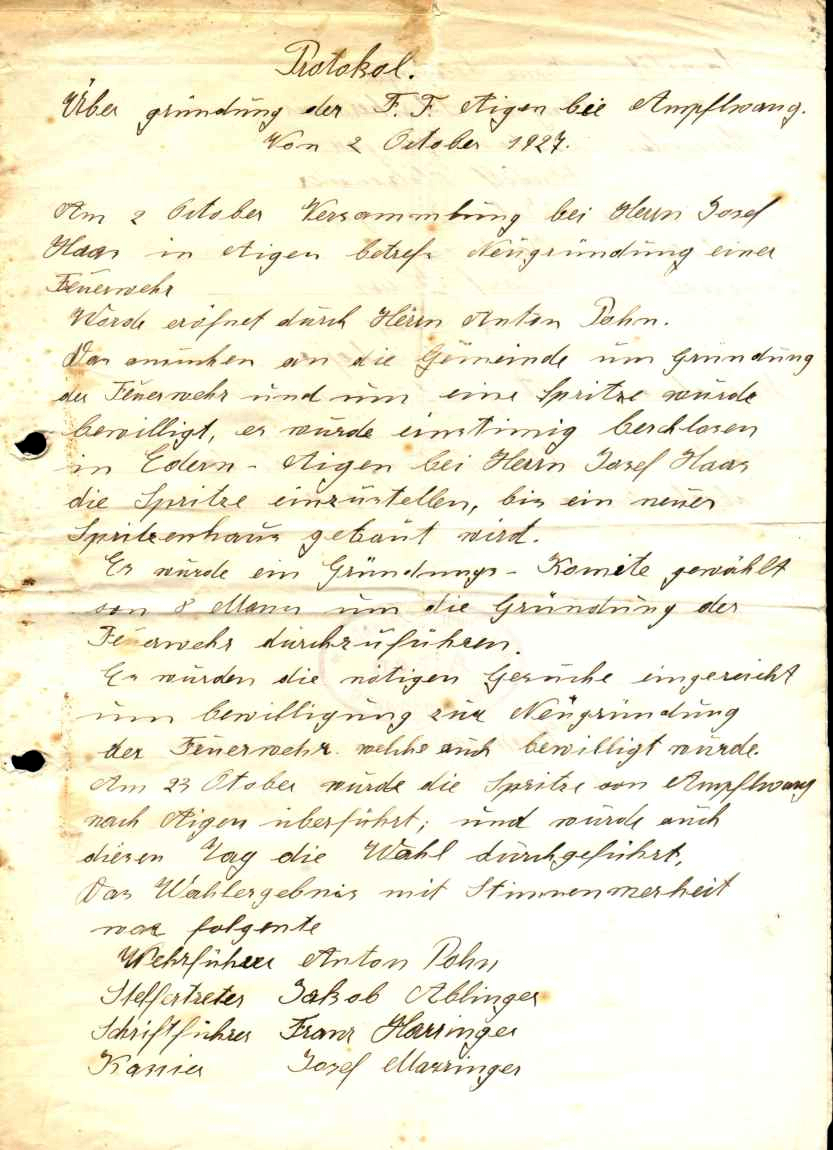 Protokol.
Über gründung der F. F. Aigen bei Ampflwang.
Von 2 October 1927.
Am 2 October Versammlung bei Herrn Josef
Haas in Aigen betrefs Neugründung einer
Feuerwehr
Worde eröfnet durch Herrn Anton Pohn.
Das ansuchen an die Gemeinde um Gründung
der Feuerwehr und um eine Spritze wurde
bewilligt, es wurde einstimig beschlosen
in Edern - Aigen bei Herrn Josef Haas
die Spritze einzustellen, bis ein neues
Spritzenhaus gebaut wird.
Es wurde ein Gründungs - Komite gewählt
von 8 Mann um die Gründung der
Feuerwehr durchzuführen.
Es wurden die nötigen Gesuche eingereicht
um bewilligung zur Neugründung
der Feuerwehr welche auch bewilligt wurde
Am 23 Otober wurde die Spritze von Ampflwang
nach Aigen überführt; und wurde auch
diesen Tag die Wahl durchgeführt,
Das Wahlergebnis mit Stimmenmerheit
war folgente
Wehrführer Anton Pohn
Steffertreter Jakob Ablinger
Schriftführer Franz Harringer
Kassier Josef Mazringer